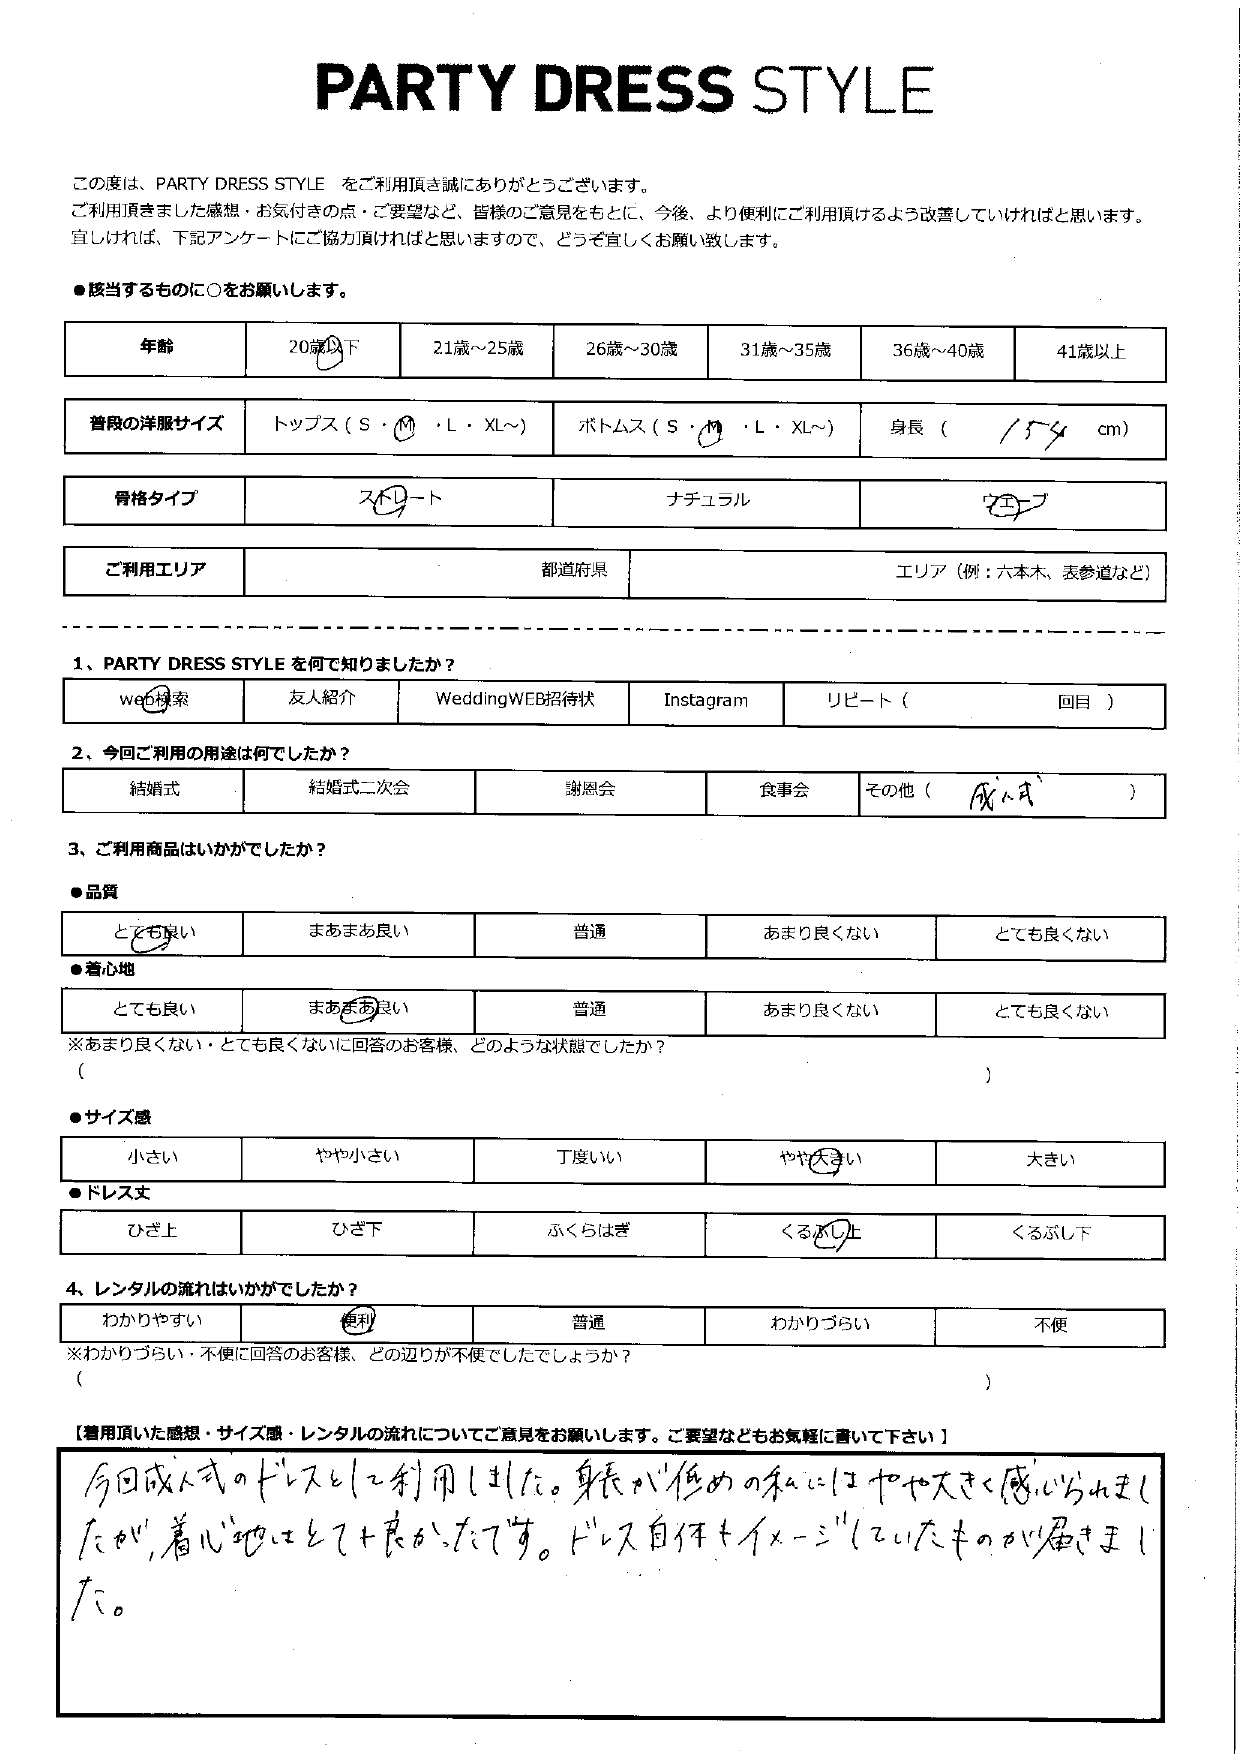 PARTY DRESS STYLE
この度は、PARTY DRESS STYLE　をご利用頂き誠にありがとうございます。
ご利用頂きました感想・お気付きの点・ご要望など、皆様のご意見をもとに、今後、より便利にご利用頂けるよう改善していければと思います。
宜しければ、下記アンケートにご協力頂ければと思いますので、どうぞ宜しくお願い致します。
●該当するものに○をお願いします。
年齢 20歳以下 21歳～25歳 26歳～30歳 31歳～35歳 36歳～40歳 41歳以上
普段の洋服サイズ トップス ( S ・ M ・L・ XL～) ボトムス ( S ・ M ・L・ XL～) 身長 ( 154 cm)
骨格タイプ ストレート ナチュラル ウエーブ
ご利用エリア 都道府県 エリア（例：六本木、表参道など）
1、PARTY DRESS STYLE を何で知りましたか？
web検索 友人紹介 WeddingWEB招待状 Instagram リピート（ 回目 ）
2、今回ご利用の用途は何でしたか？
結婚式 結婚式二次会 謝恩会 食事会 その他（ 成人式 ）
3、ご利用商品はいかがでしたか？
●品質
とても良い まあまあ良い 普通 あまり良くない とても良くない
●着心地
とても良い まあまあ良い 普通 あまり良くない とても良くない
※あまり良くない・とても良くないに回答のお客様、どのような状態でしたか？
( )
●サイズ感
小さい やや小さい 丁度いい やや大きい 大きい
●ドレス丈
ひざ上 ひざ下 ふくらはぎ くるぶし上 くるぶし下
4、レンタルの流れはいかがでしたか？
わかりやすい 便利 普通 わかりづらい 不便
※わかりづらい・不便に回答のお客様、どの辺りが不便でしたでしょうか？
( )
【着用頂いた感想・サイズ感・レンタルの流れについてご意見をお願いします。ご要望などもお気軽に書いて下さい 】
今回成人式のドレスとして利用しました。身長が低めの私にはやや大きく感じられまし
たが、着心地はとても良かったです。ドレス自体もイメージしていたものが届きまし
た。